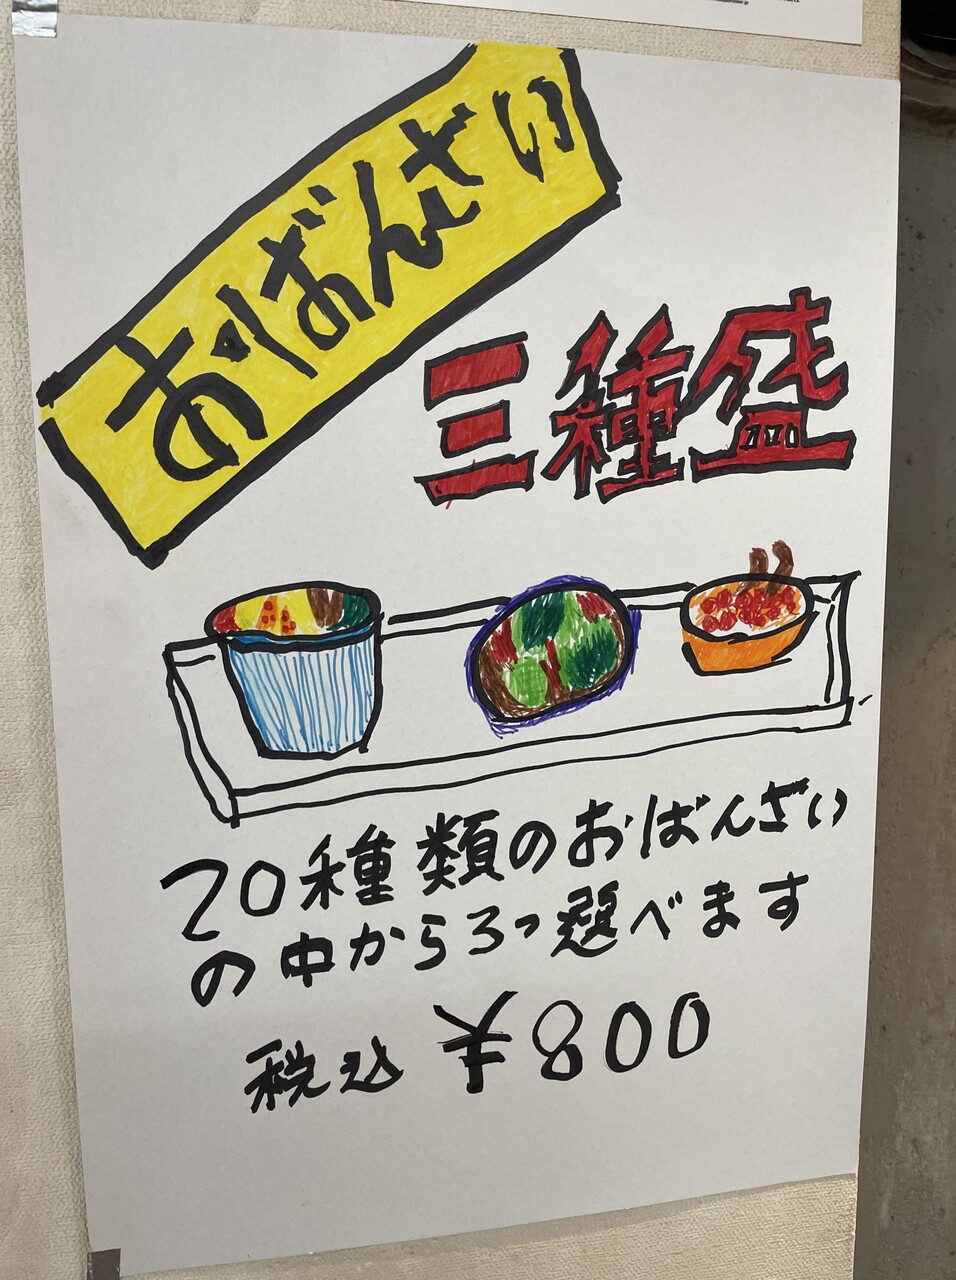 おばんざい
三種盛
20種類のおばんざい
の中から3つ選べます
税込 ¥800